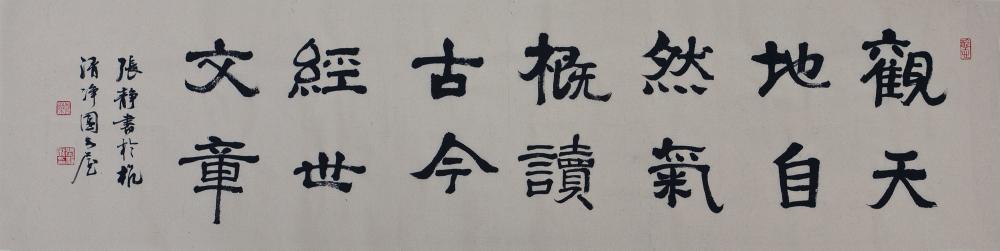 觀天
地自
然氣
概讀
古今
經世
文章
張靜書於杭
清淨園